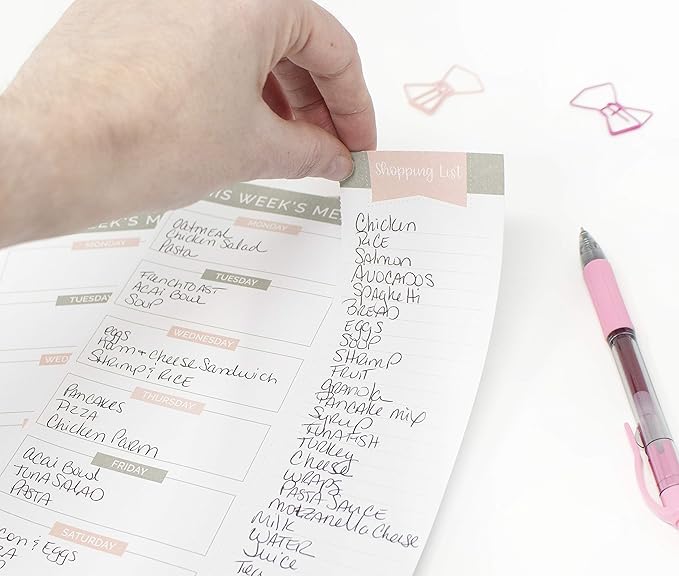 Shopping List
Chicken
RICE
Salmon
AVOCADOS
Spaghetti
BREAD
EGGS
SOUP
SHRIMP
FRUIT
granola
PANCAKE MIX
Syrup
TUNAFISH
TURKEY
Cheese
WRAPS
PASTA SAUCE
mozzanella Cheese
MILK
WATER
Juice
Tea
HIS WEEK'S ME
MONDAY
OATMEAL
Chicken Salad
Pasta
TUESDAY
French TOAST
Acai Bowl
SOUP
WEDNESDAY
eggs
Ham & Cheese Sandwich
SHRIMP & RICE
THURSDAY
PANCAKES
PIZZA
Chicken Parm
FRIDAY
acai Bowl
TUNA SALAD
PASTA
SATURDAY
con & Eggs
ZA
WEEK'S M
MONDAY
TUESDAY
WED